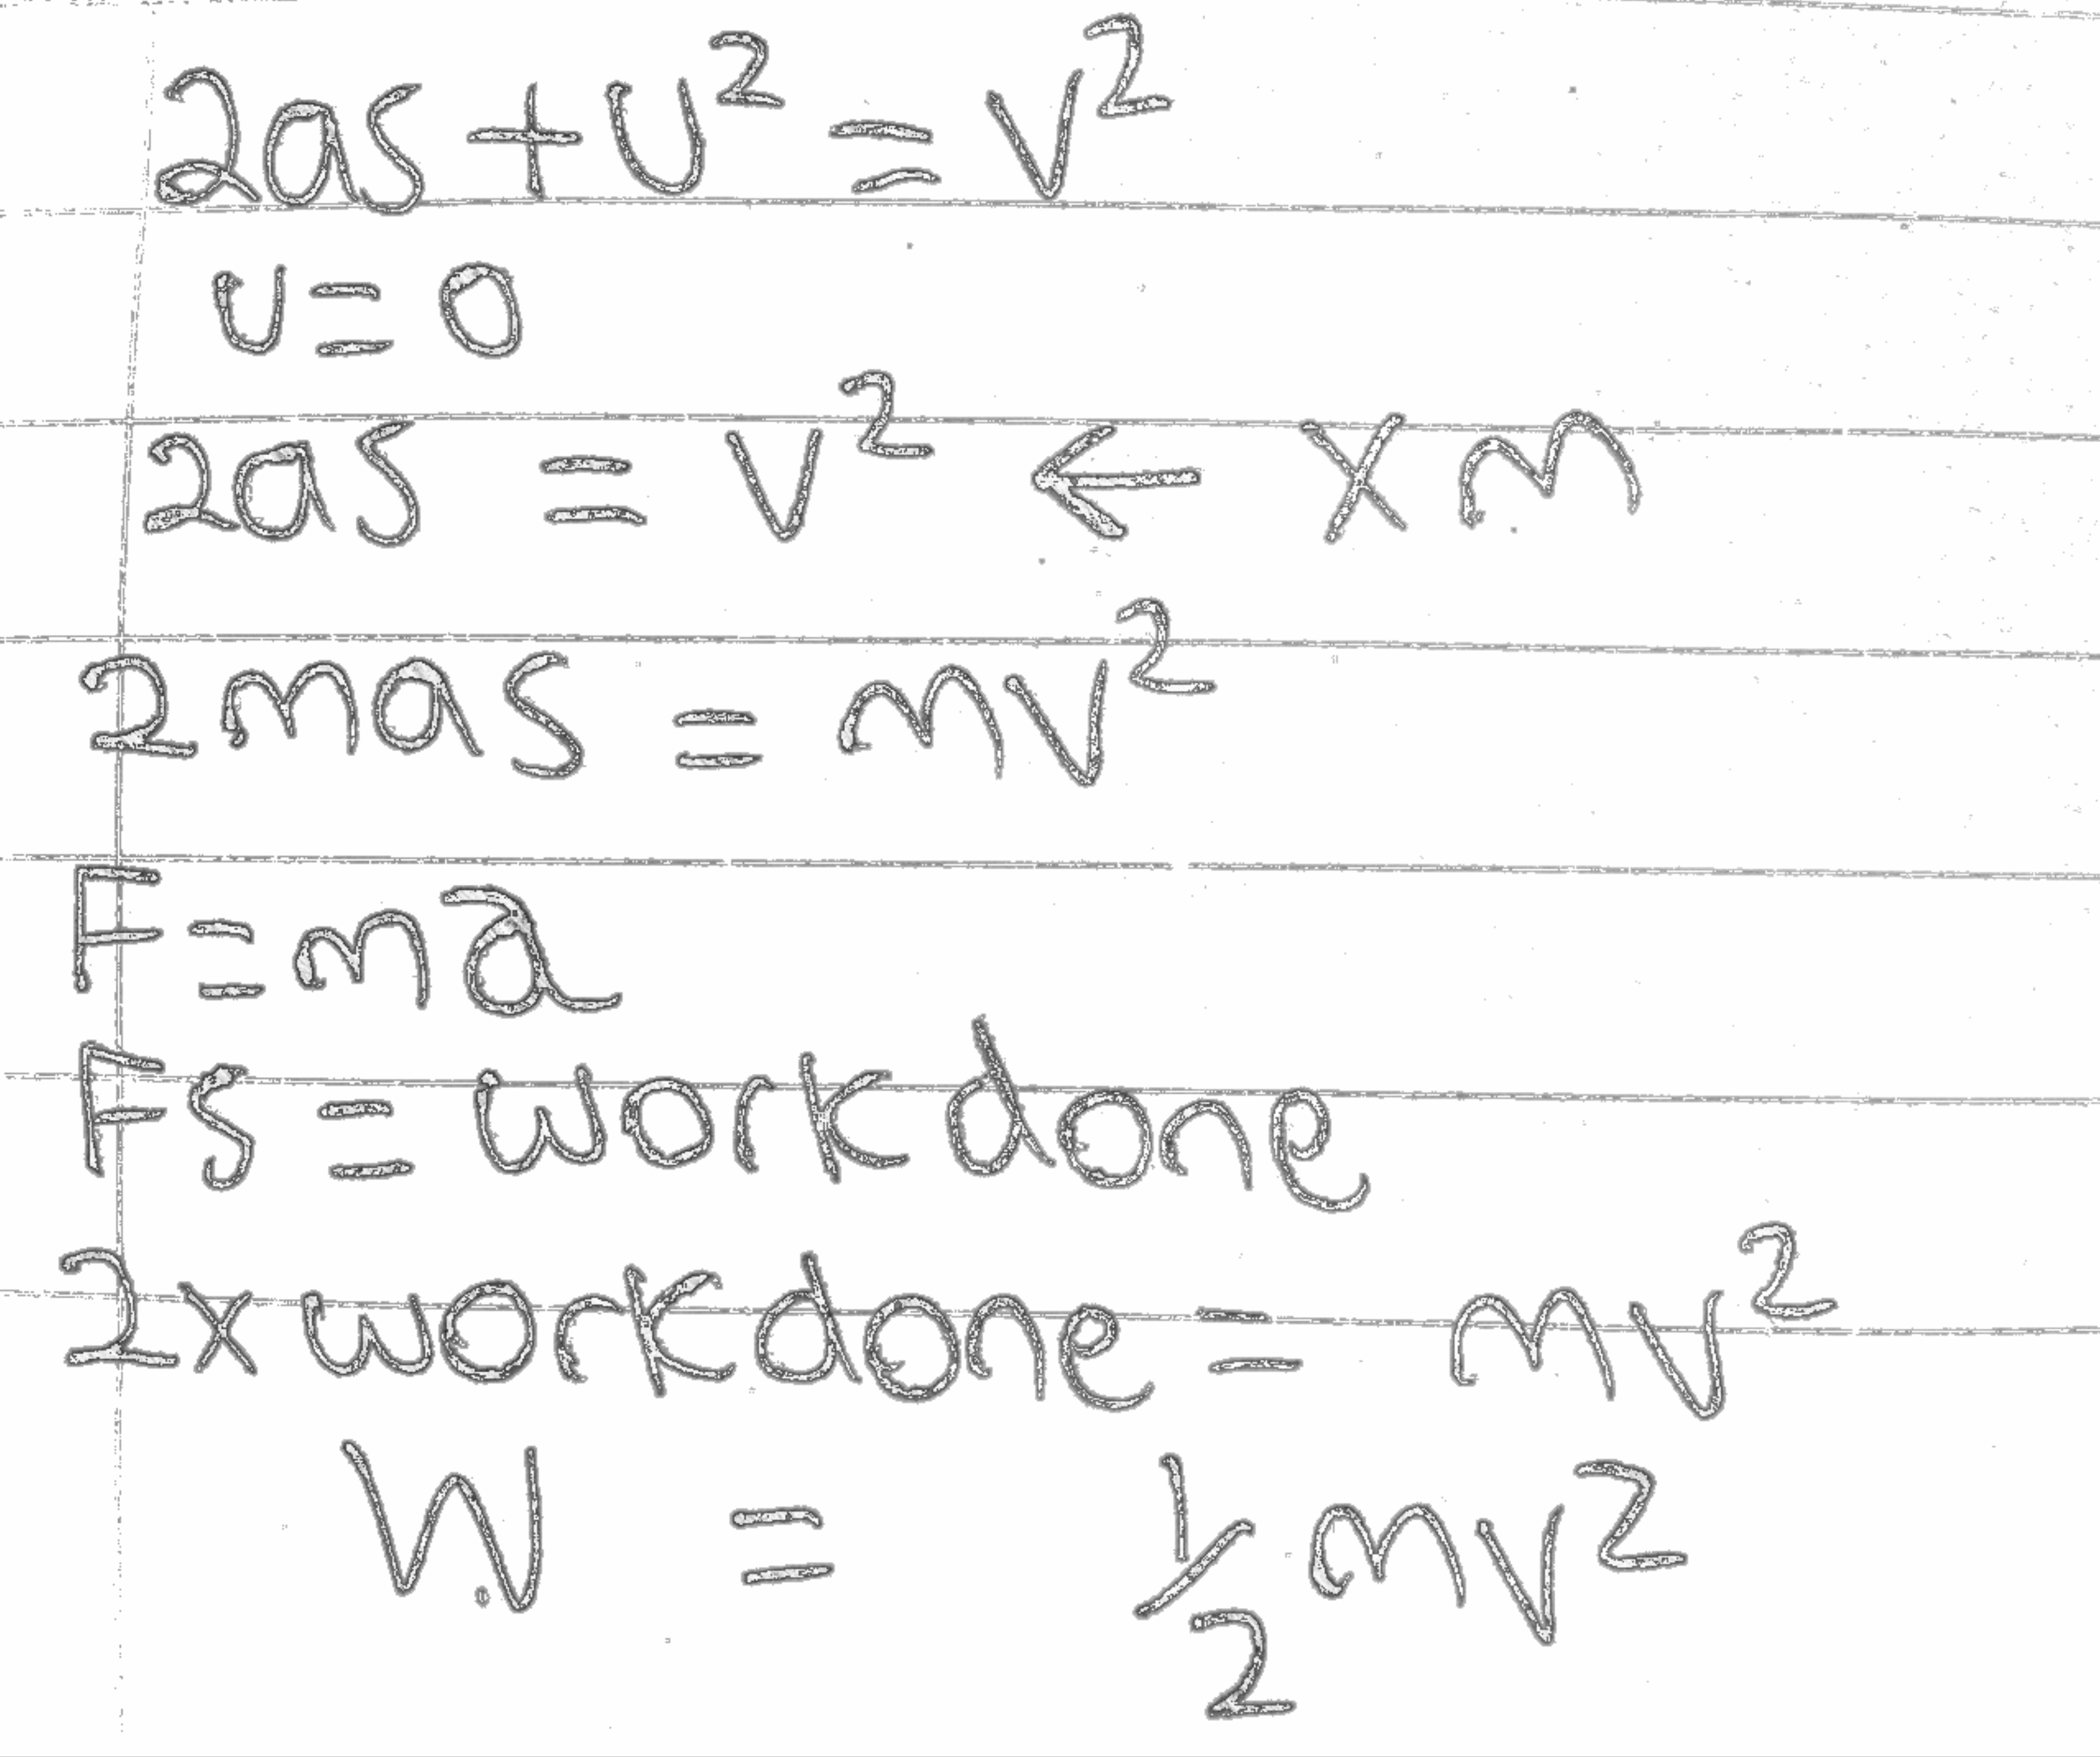 2as + u² = v²
u = 0
2as = v² ← × m
2mas = mv²
F = ma
Fs = work done
2 × work done = mv²
W = ½ mv²